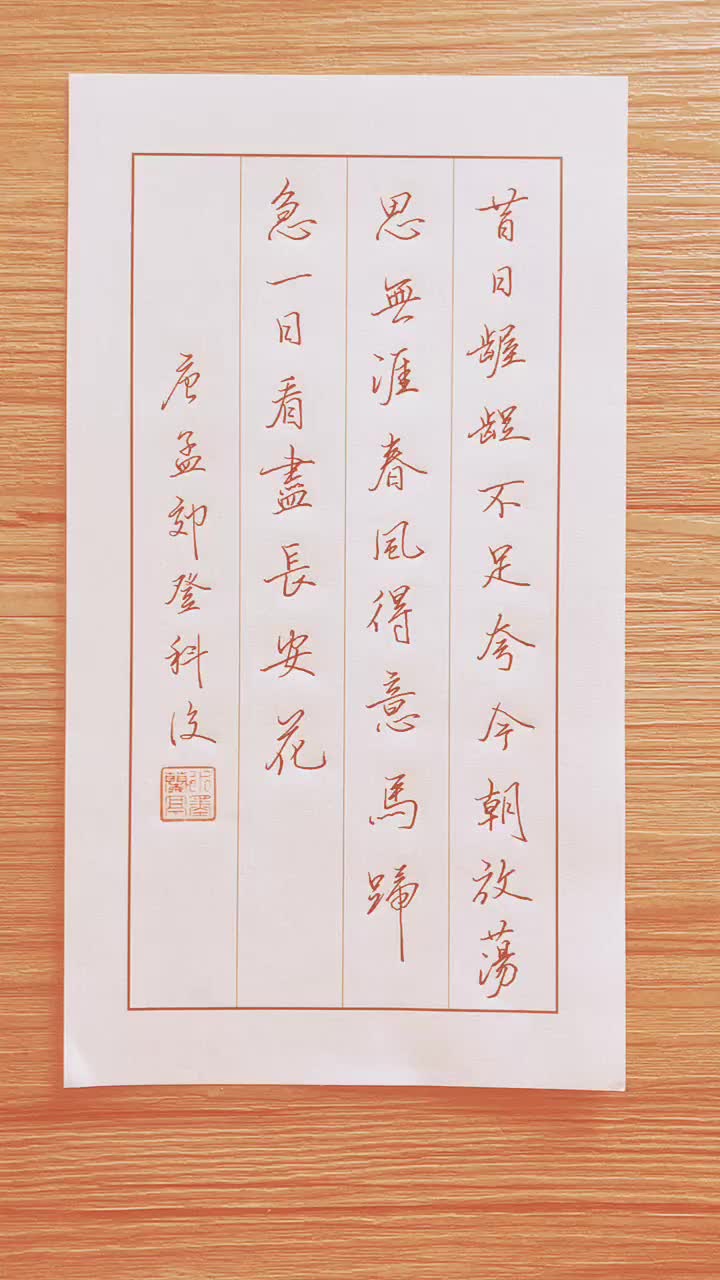 昔日齷齪不足夸今朝放蕩
思無涯春風得意馬蹄
急一日看盡長安花
唐孟郊登科後